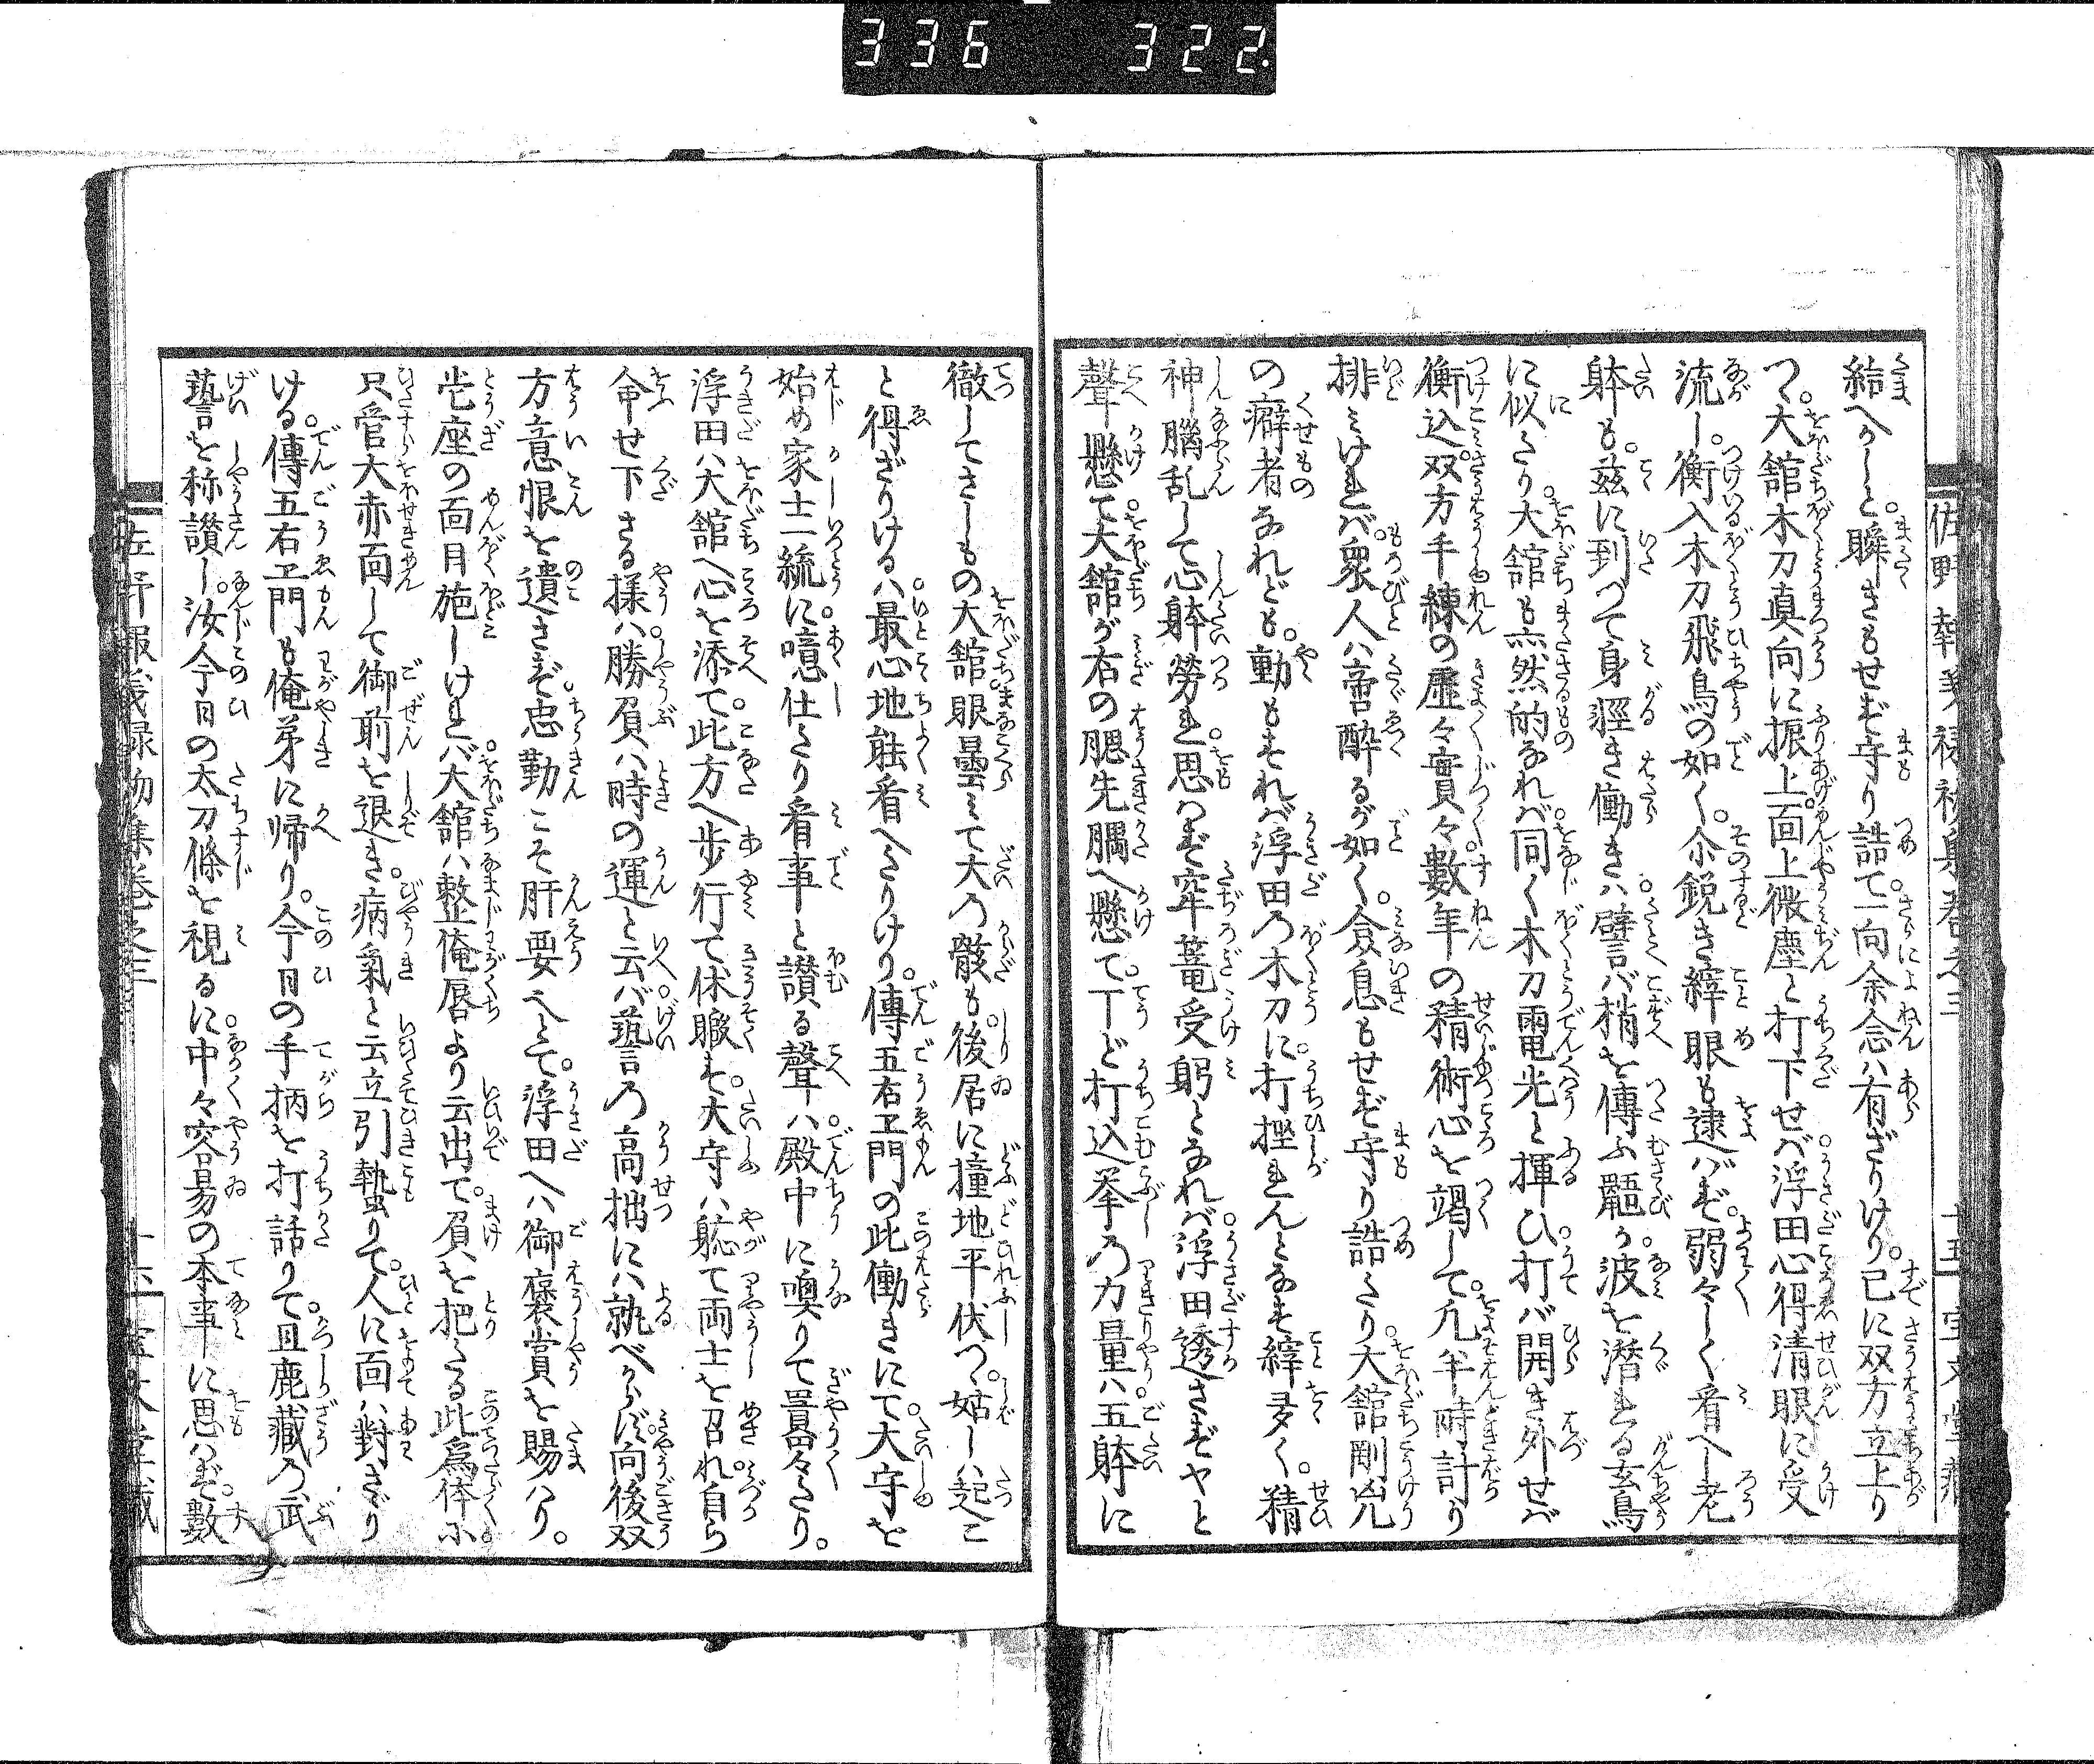 336 322
佐野報義録初集巻之三 十五 宝文堂蔵
結へかしと。瞬きもせず守り詰て一向余念ハ有ざりけり。已に双方立上り
つ。大舘木刀真向に振上。面上微塵と打下せバ。浮田心得清眼に受
流し。衝入木刀飛鳥の如く。尒鋭き縡眼も逮バず。弱々しく看へし老
躰も。茲に到つて身輕き働きハ。譬バ梢を傳ふ鼯か。波を潜れる玄鳥
に似たり。大舘も烋然的なれバ。同く木刀電光と揮ひ。打バ開き外せバ
衝込。双方手練の虚々實々。數年の精術心を竭して。凡半時計り
挑ミけれバ。衆人ハ啻酔るが如く。僉息もせず守り詰たり。大舘剛兇
の癖者なれども。動もすれバ浮田乃木刀に。打挫れんとなす縡多く。精
神腦乱して心躰勞れ。思ハず窂篭受躬となれバ。浮田透さずヤと
聲懸て。大舘が右の腮先膕へ懸て。丁ど打込拳乃力量ハ。五躰に
徹してさしもの大舘眼曇ミて大乃骸も。後居に撞地平伏つ。姑しハ起こ
と得ざりけるハ。最心地能看へたりけり。傳五右ヱ門の此働きにて。大守を
始め家士一統に。噫仕たり看事と讃る聲ハ。殿中に喚りて囂々たり。
浮田ハ大舘へ心を添て。此方へ歩行て休臌す。大守ハ軈て両士を召れ。自ら
命せ下さる揉ハ。勝負ハ時の運と云バ。藝乃高拙にハ執べからず。向後双
方意恨を遺さず。忠勤こそ肝要へとて。浮田へハ御褒賞を賜ハり。
当座の面目施しけれバ。大舘ハ整俺唇より云出て。負を把たる此爲体に
只管大赤面して御前を退き。病氣と云立引蟄りて。人に面ハ對さゞり
ける。傳五右ヱ門も俺弟に帰り。今日の手柄を打話りて。且鹿藏乃武
藝を称讃し。汝今日の太刀條を視るに。中々容昜の本事に思ハず。數
佐野報義録初集巻之三 十六 宝文堂蔵